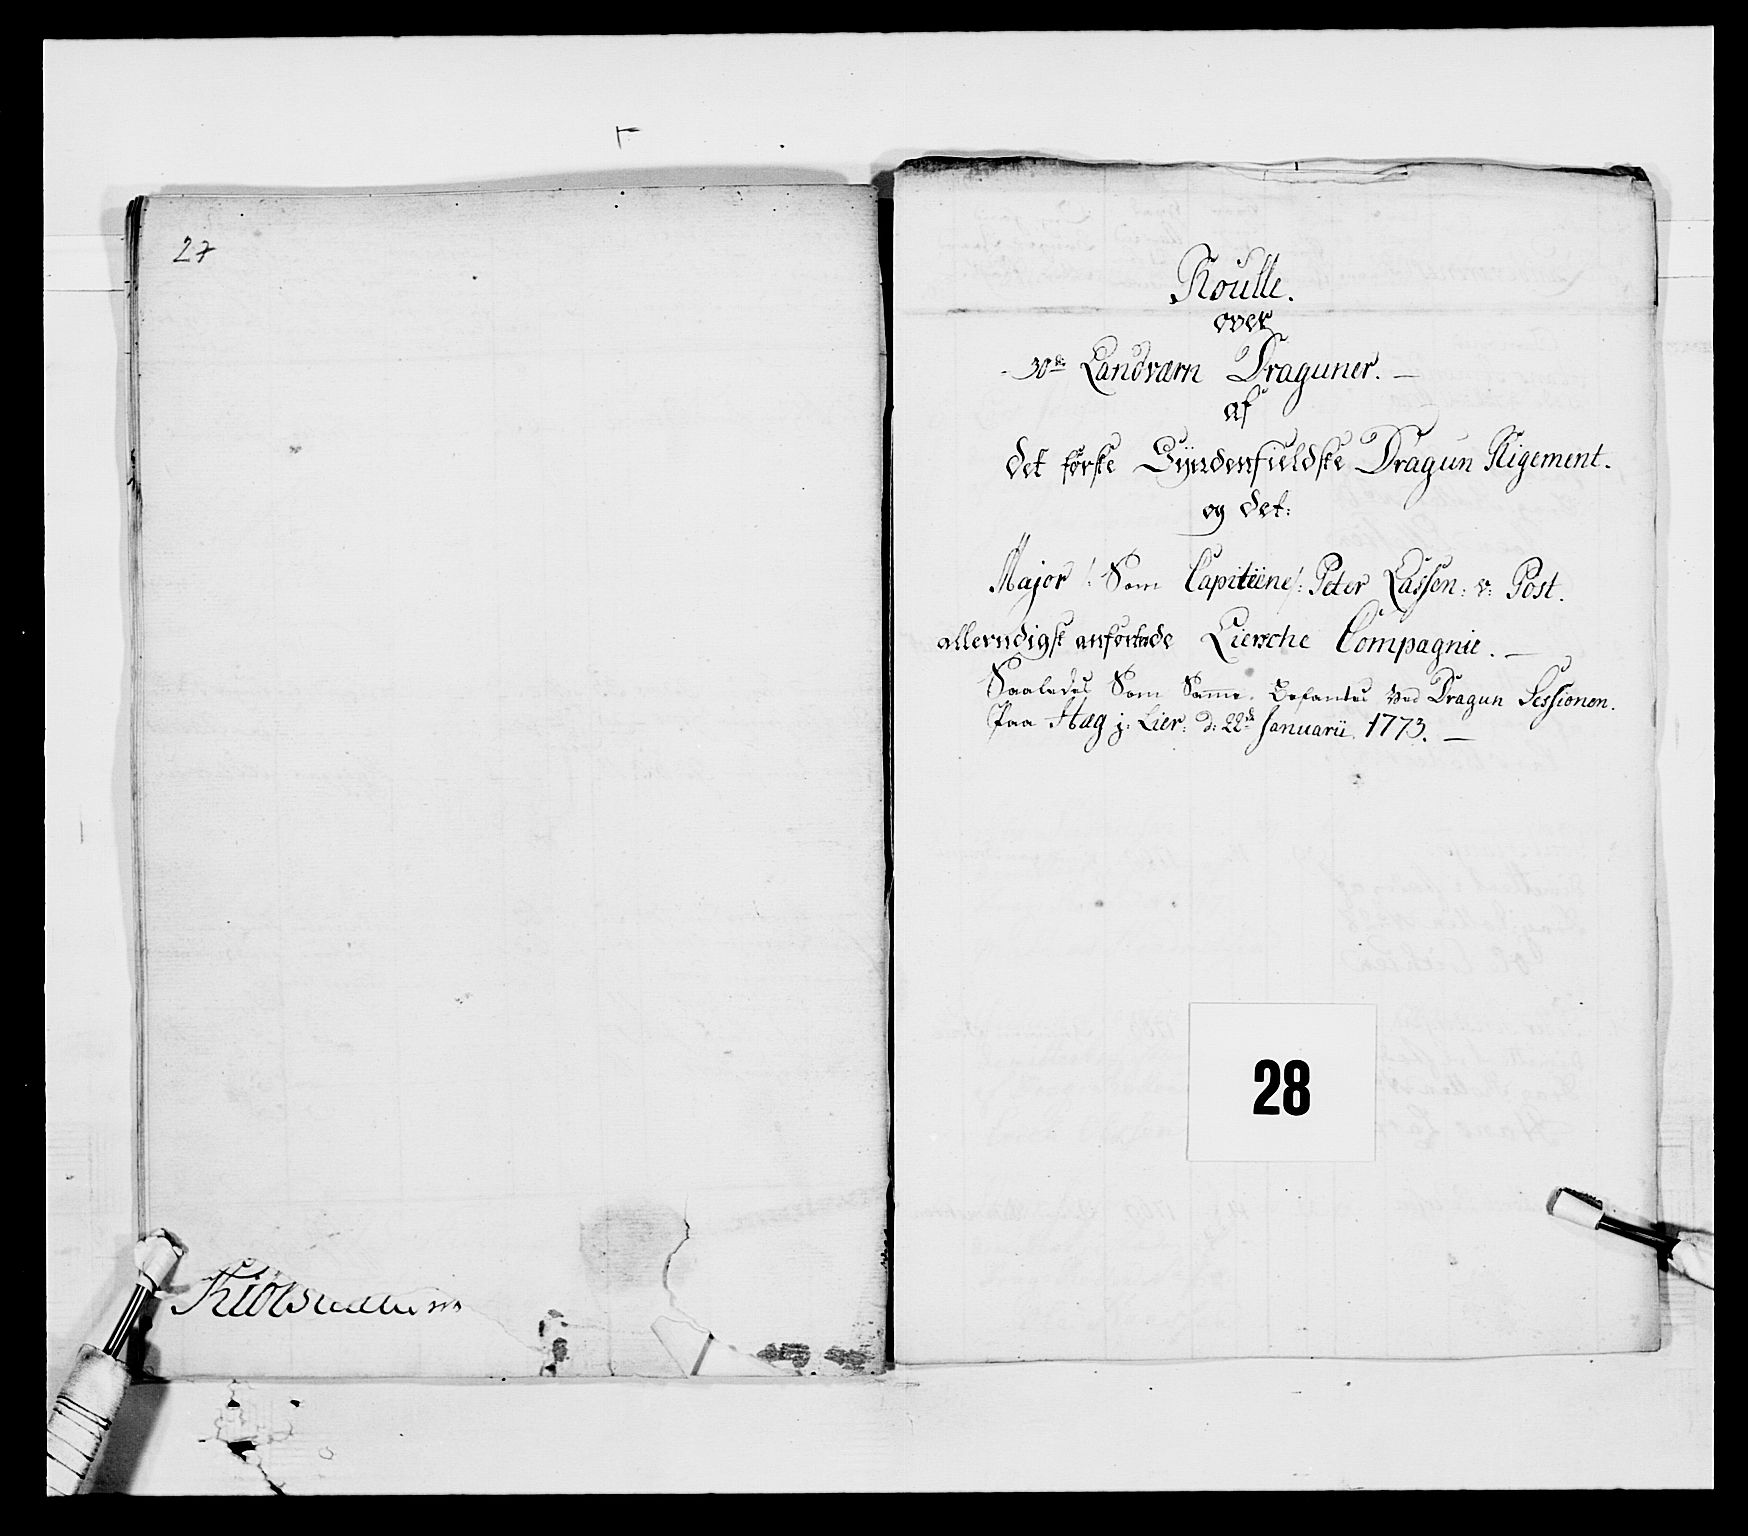 27
Roulle.
over
30de Landværn Draguner. —
af
det første Syndenfieldske Dragun Rigement.
og det:
Major /: Som Capitiene/: Peter Lassen: v: Post.
allerndigst anførtede Liersche Compagnie. —
Saaledes Som Samme. Befantes Ved Dragun Sessionen.
Paa Hæg j: Lier: d: 22de Januarii 1773. —
28